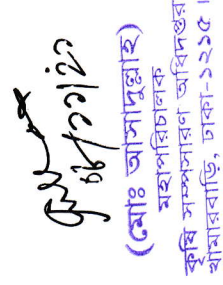 (মোঃ আসাদুল্লাহ)
মহাপরিচালক
কৃষি সম্প্রসারণ অধিদপ্তর
খামারবাড়ি, ঢাকা-১২১৫।